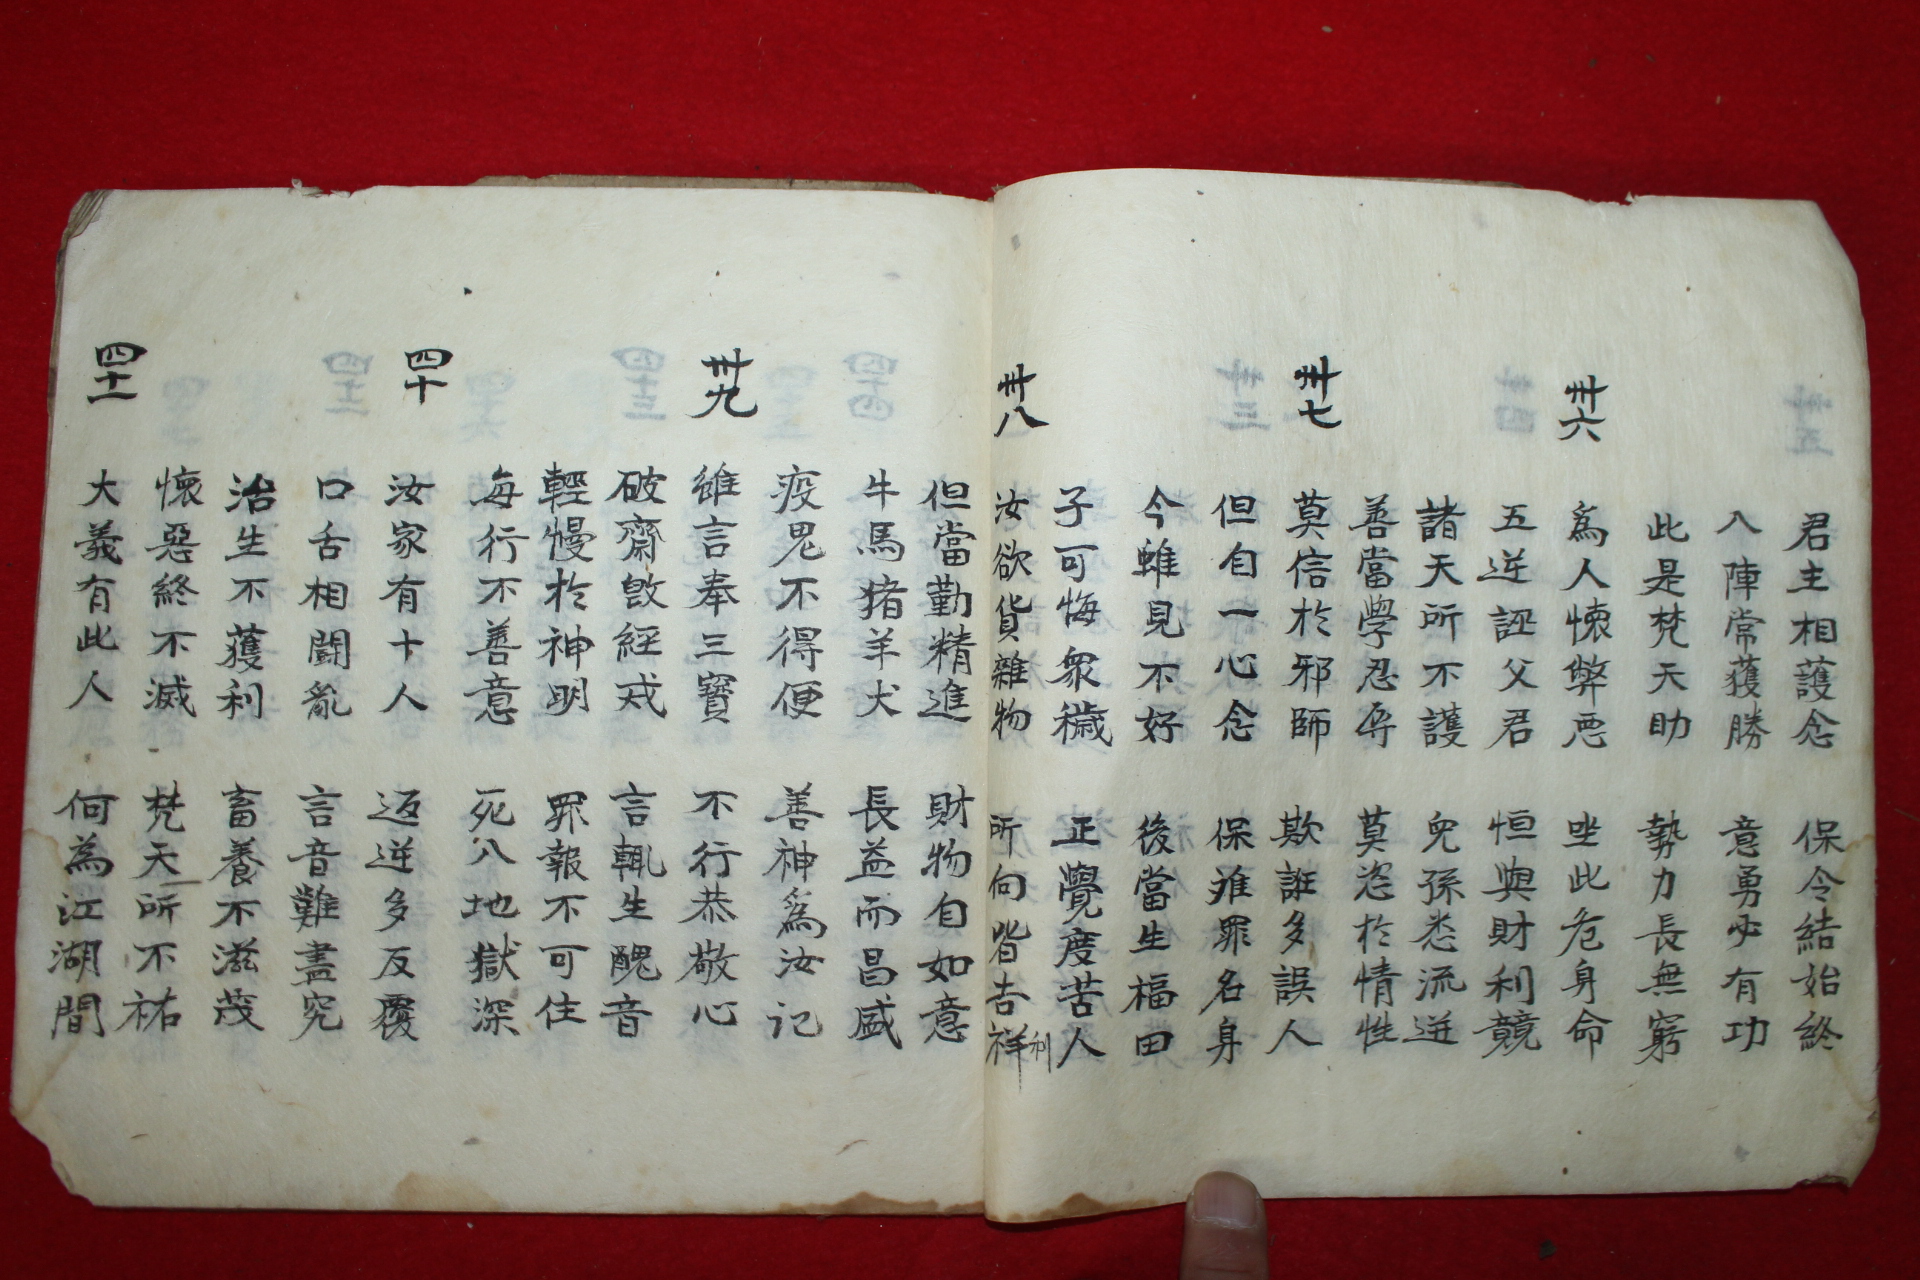 君主相護念 保令結始終
八陣常獲勝 意勇必有功
此是梵天助 勢力長無窮
卅六 爲人懷弊惡 坐此危身命
五逆誣父君 恒與財利競
諸天所不護 兒孫悉流迸
善當學忍辱 莫恣於情性
卅七 莫信於邪師 欺誑多誤人
但自一心念 保難罪名身
今雖見不好 後當生福田
子可悔衆穢 正覺度苦人
卅八 汝欲貨雜物 所向皆吉祥利
但當勤精進 財物自如意
牛馬猪羊犬 長益而昌盛
疫鬼不得便 善神爲汝記
卅九 雖言奉三寶 不行恭敬心
破齋毀經戒 言輒生醜音
輕慢於神明 罪報不可住
每行不善意 死入地獄深
四十 汝家有十人 返逆多反覆
口舌相鬪亂 言音難盡究
治生不獲利 畜養不滋茂
懷惡終不滅 梵天所不祐
四十一 大義有此人 何為江湖間